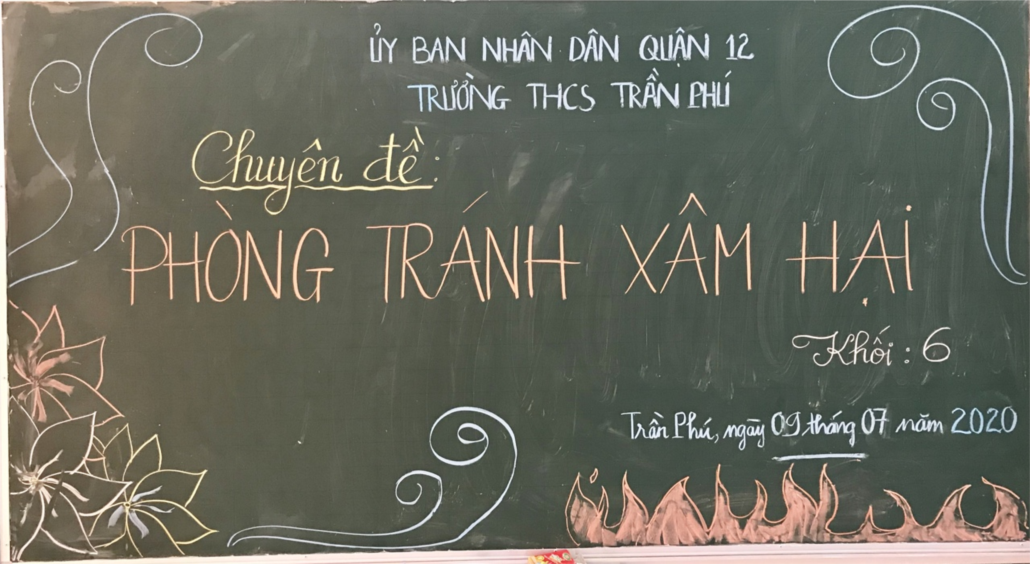 ỦY BAN NHÂN DÂN QUẬN 12
TRƯỜNG THCS TRẦN PHÚ
Chuyên đề:
PHÒNG TRÁNH XÂM HẠI
Khối : 6
Trần Phú, ngày 09 tháng 07 năm 2020